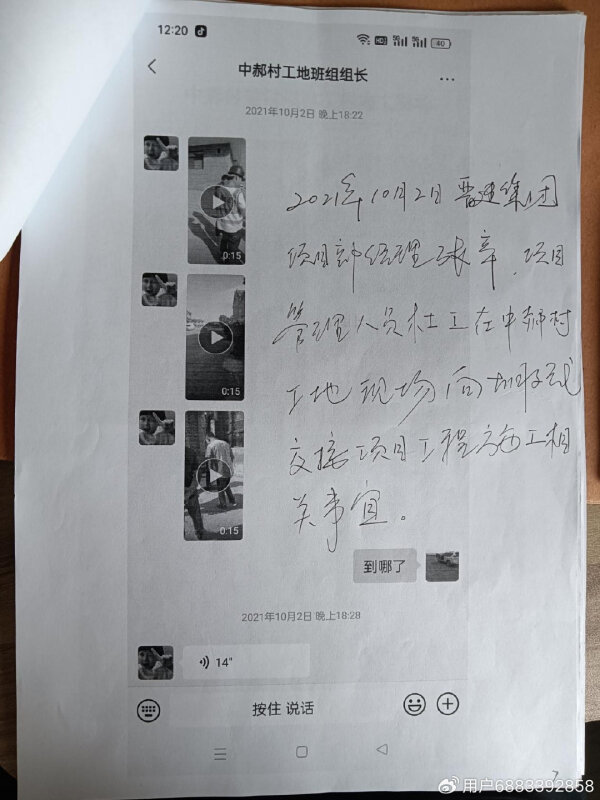 12:20
中郝村工地班组组长
2021年10月2日 晚上18:22
0:15
0:15
0:15
2021年10月2日晋建集团
项目部经理张辛、项目
管理人员杜工在中郝村
工地现场向
交接项目工程施工相
关事宜。
到哪了
2021年10月2日 晚上18:28
14"
按住 说话
7
@用户6883392858